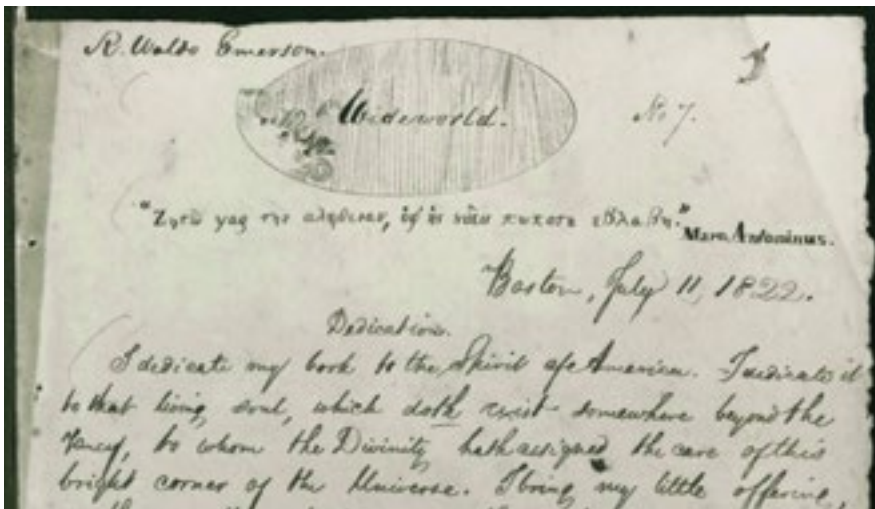 R. Waldo Emerson.
Wideworld.
No 7.
"Ζητω γαρ την αληθειαν, ὑφ' ἡς
Marc. Antoninus.
Boston, July 11, 1822.
Dedication.
I dedicate my book to the Spirit of America. I dedicate it
to that living soul, which doth exist somewhere beyond the
Fancy, to whom the Divinity hath assigned the care of this
bright corner of the Universe. I bring my little offering,